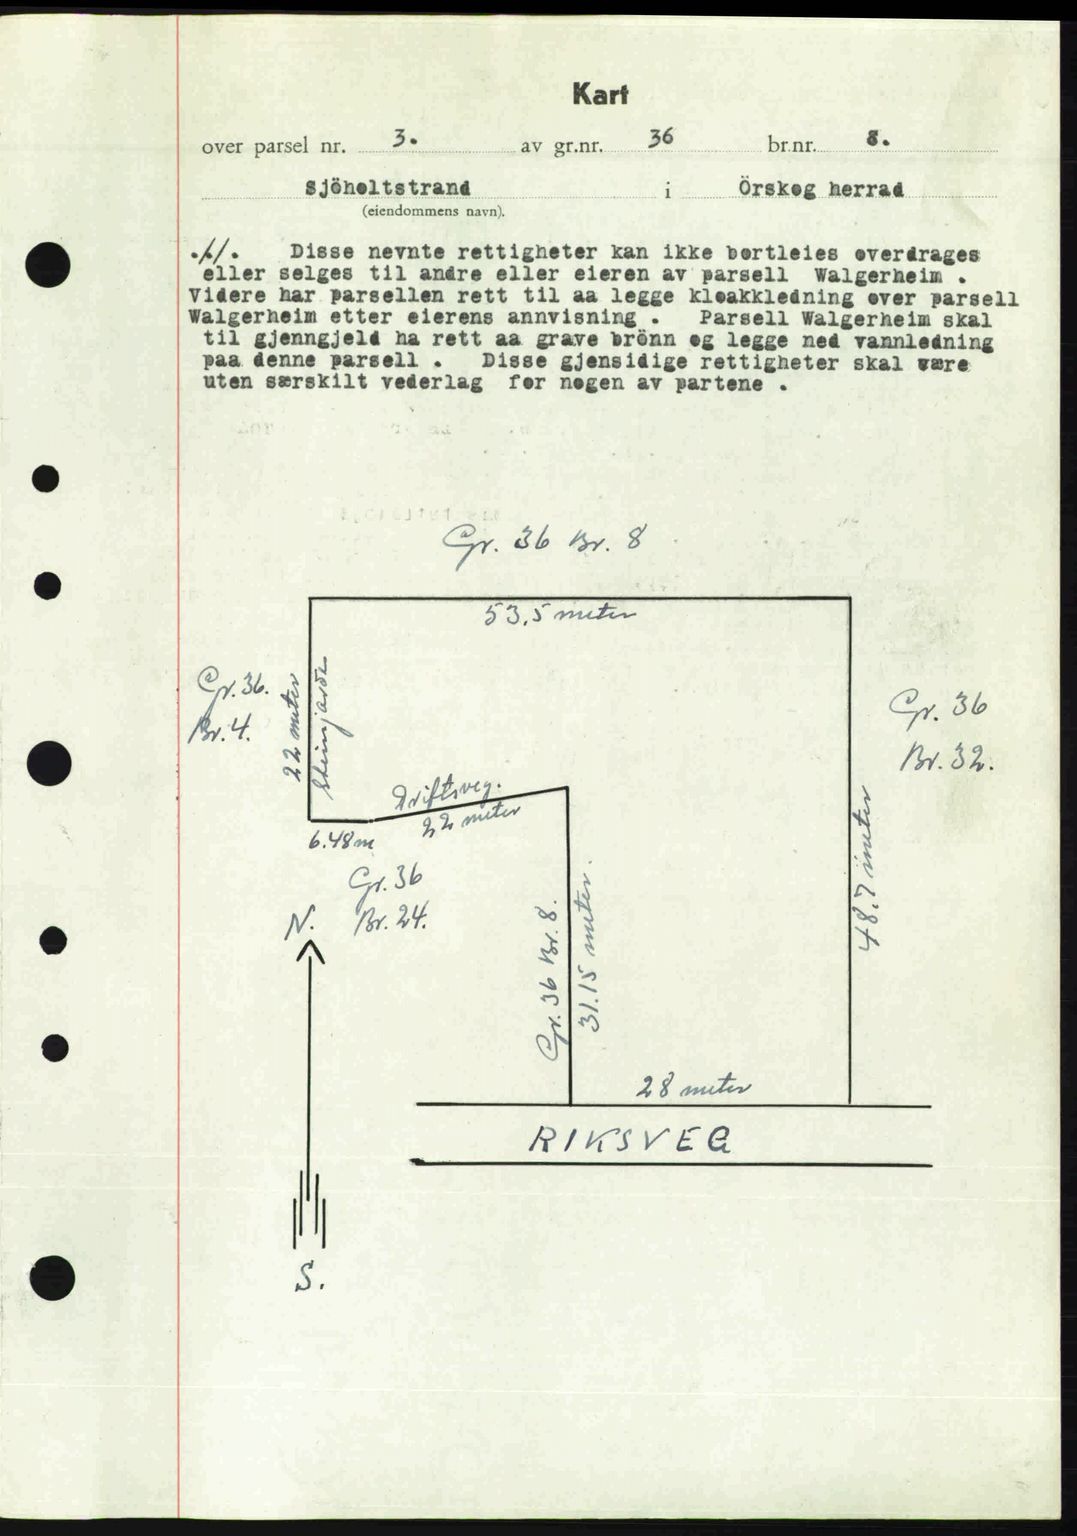 Kart
over parsel nr. 3. av gr.nr. 36 br.nr. 8.
Sjöholtstrand i Örskog herrad
(eiendommens navn).
./. Disse nevnte rettigheter kan ikke bortleies overdrages
eller selges til andre eller eieren av parsell Walgerheim .
Videre har parsellen rett til aa legge kloakkledning over parsell
Walgerheim etter eierens annvisning . Parsell Walgerheim skal
til gjenngjeld ha rett aa grave brönn og legge ned vannledning
paa denne parsell . Disse gjensidige rettigheter skal være
uten særskilt vederlag for nogen av partene .
Gr. 36 Br. 8
53,5 meter
Gr. 36.
Br. 4.
22 meter
Steinjarde
Gr. 36
Br. 32.
Driftsveg.
22 meter
6.48 m
Gr. 36
Br. 24.
48.7 meter
Gr. 36 Br. 8.
31.15 meter.
N.
28 meter
RIKSVEG
S.